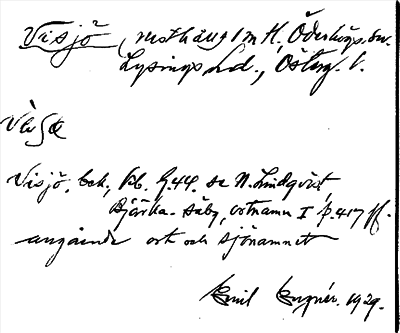 Visjö, rusthåll 1 m H, Ödeshögs sn.
Lysings hd., Österg. l.
Visjö, bek., Kb. G.44. se N. Lindqvist,
Bjärka-Säby, ortnamn I p. 417 ff.
angående ort och sjönamnet
Emil 1929.